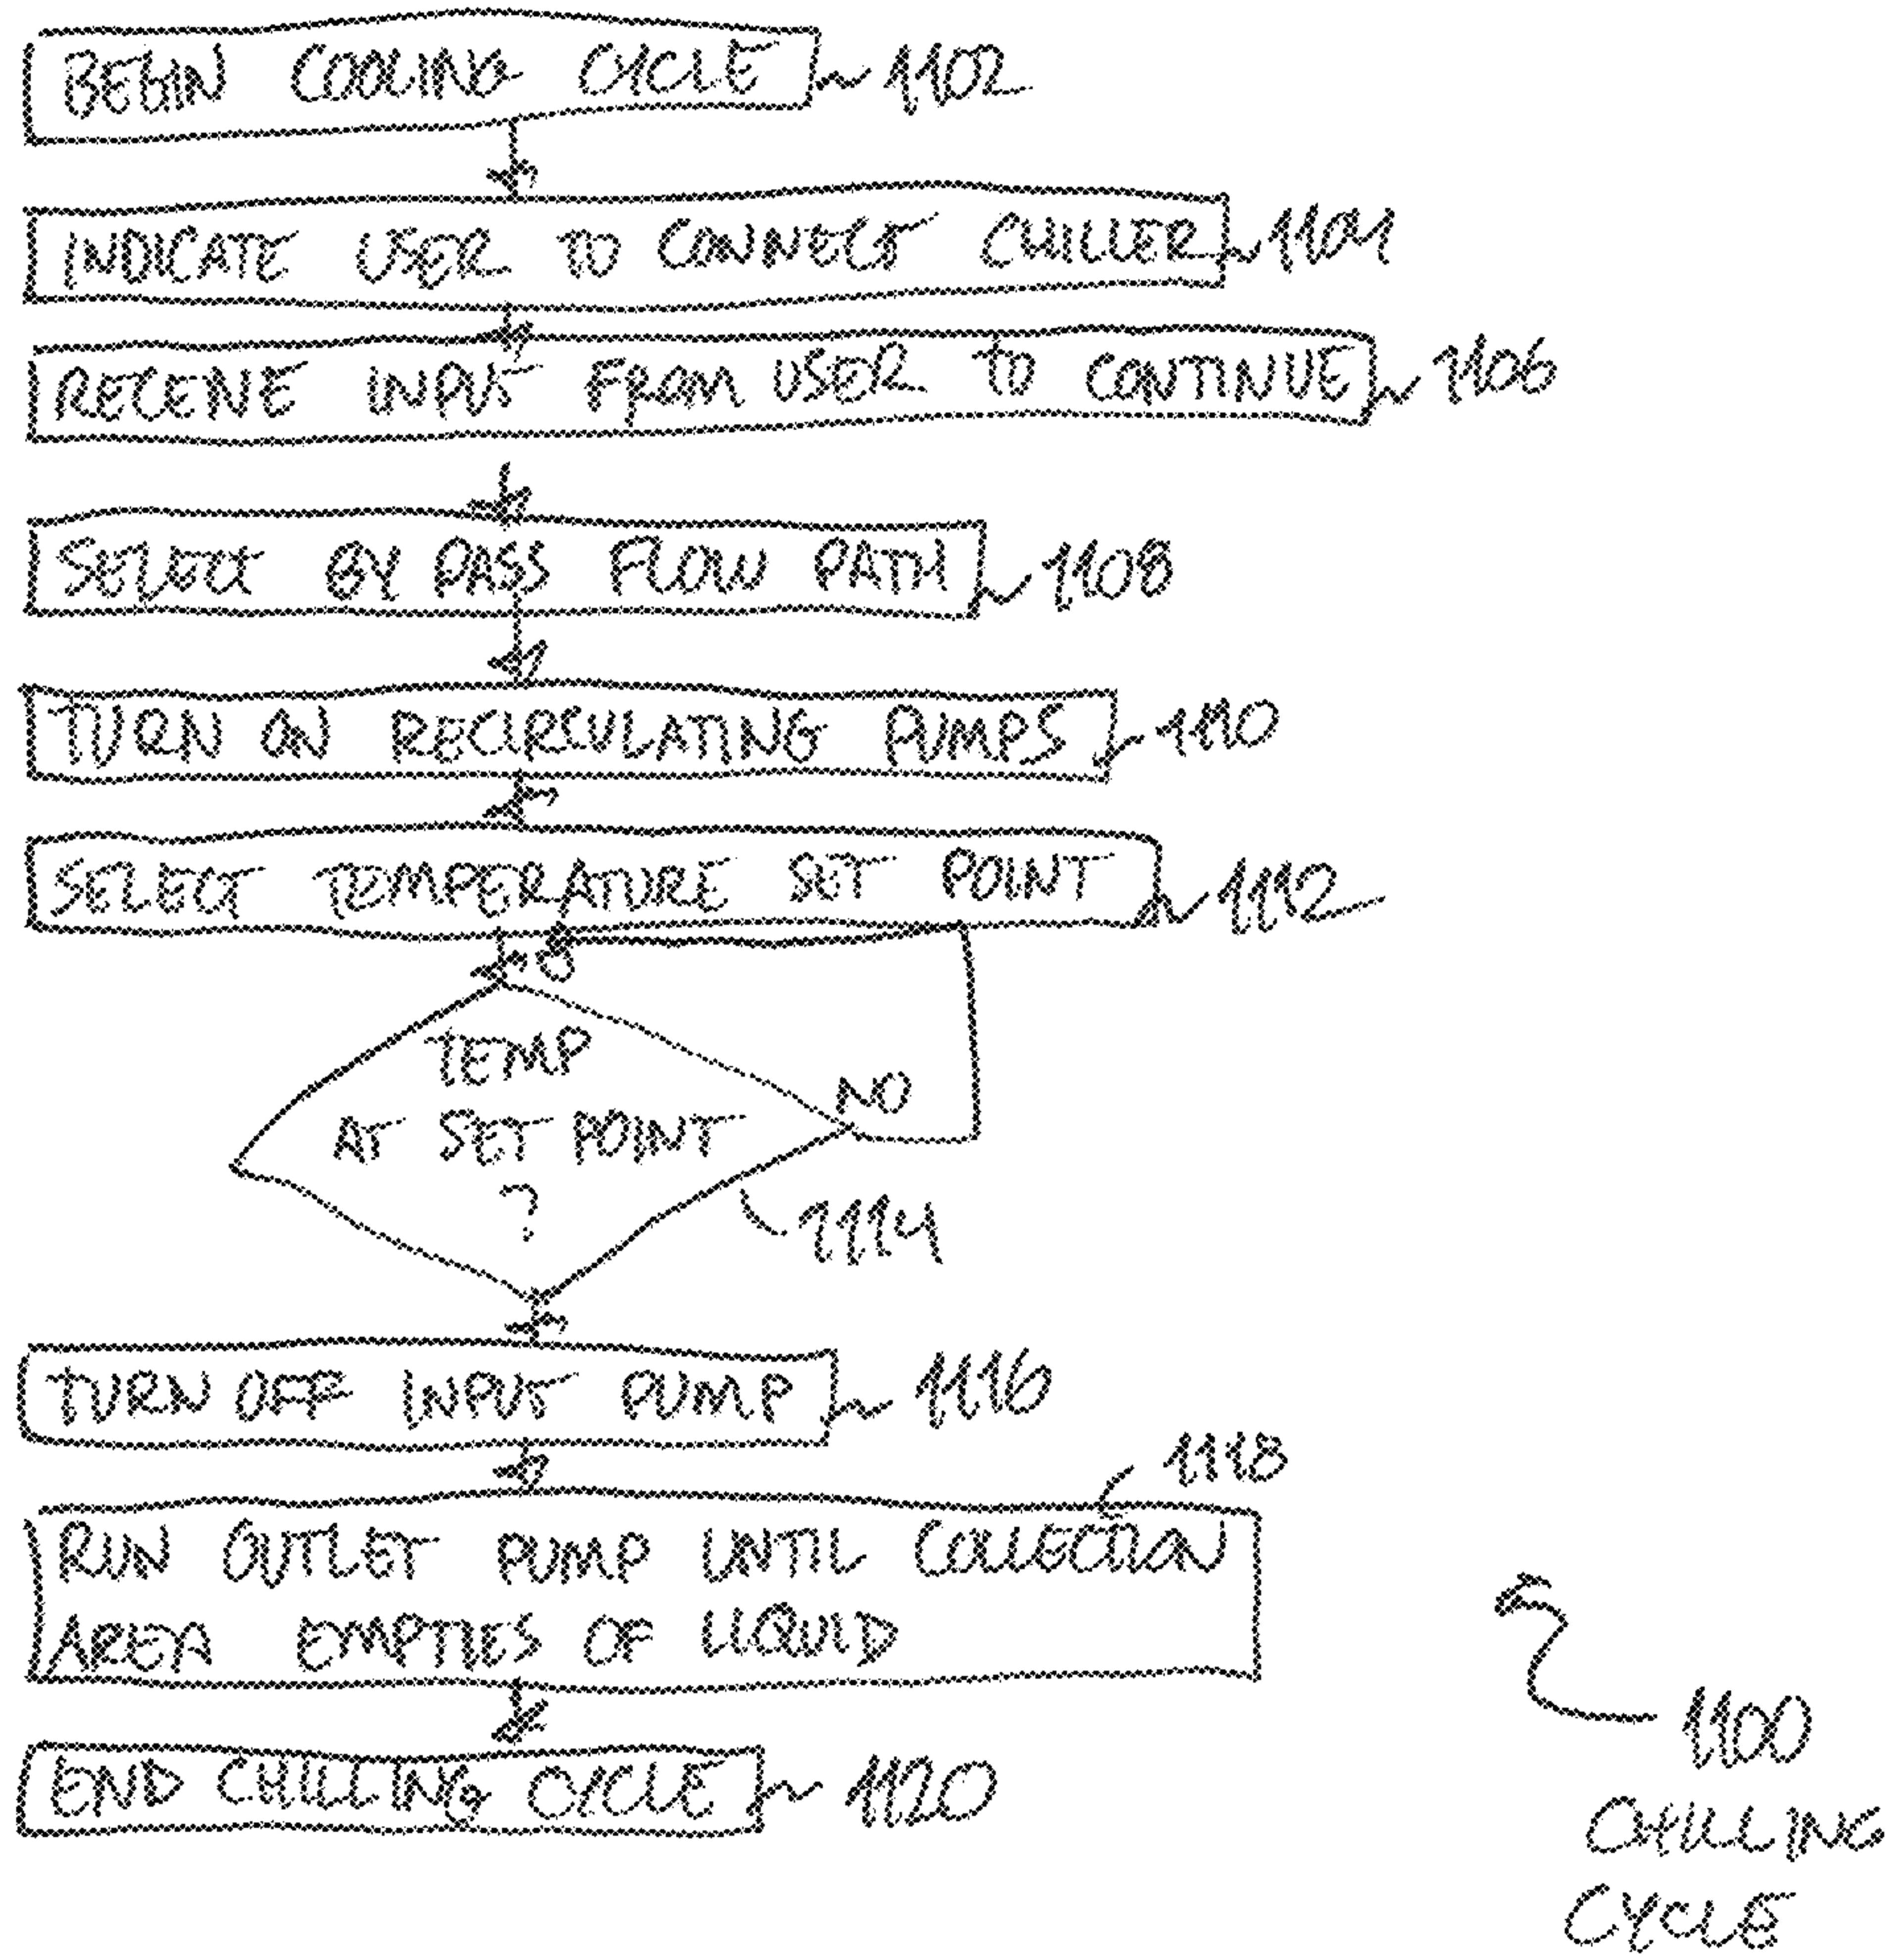 BEGIN COOLING CYCLE 1102
INDICATE USER TO CONNECT CHILLER 1104
RECEIVE INPUT FROM USER TO CONTINUE 1106
SELECT BY PASS FLOW PATH 1108
TURN ON RECIRCULATING PUMPS 1110
SELECT TEMPERATURE SET POINT 1112
TEMP
NO
AT SET POINT
?
1114
TURN OFF INPUT PUMP 1116
1118
RUN OUTLET PUMP UNTIL COLLECTION
AREA EMPTIES OF LIQUID
END CHILLING CYCLE 1120
1100
CHILLING
CYCLE